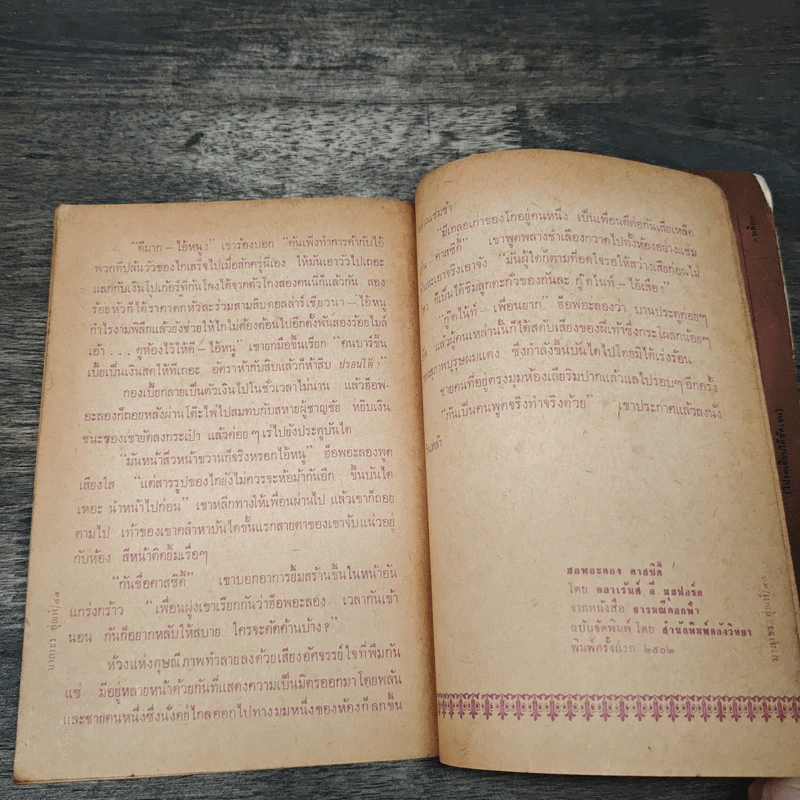 "ดีมาก – ไอ้หนู!" เขาร้องบอก "กันเพิ่งทำการค้ากับไอ้
พวกที่ปล้นวัวของไกเสร็จไปเมื่อสักครู่นี่เอง ให้มันเอาวัวไปเถอะ
แลกกับเงินโปเก้อร์ที่กันโกงได้จากตัวโกงสองคนนี่ก็แล้วกัน สอง
ร้อยหัวก็ได้ราคาตกหัวละร่วมสามสิบดอลล่าร์เชียวนา – ไอ้หนู
กำไรงามพิลึกแล้วยังช่วยให้ไกไม่ต้องต้อนไปอีกตั้งพันสองร้อยไมล์
เอ้า . . . ดูห้องไว้ให้ดี – ไอ้หนู" เขายกมือขึ้นเรียก "คนบาร์ขึ้น
เบี้ยเป็นเงินสดให้ที่เถอะ อัตราห้ากับสิบแล้วก็ห้าสิบ ปรอนโต้!"
กองเบี้ยกลายเป็นตัวเงินไปในชั่วเวลาไม่นาน แล้วฮ็อพ
อะลองก็ถอยหลังผ่านโต๊ะไพ่ไปสมทบกับสหายผู้ชาญชัย หยิบเงิน
ชนะของเขายัดลงกระเป๋า แล้วค่อยๆ เร่ไปยังประตูบันได
"มันหน้าสิ่วหน้าขวานก็จริงหรอกไอ้หนู" ฮ็อพอะลองพูด
เสียงใส "แต่สารรูปของไกยังไม่ควรจะห้อม้ากันอีก ขึ้นบันได
เหอะ นำหน้าไปก่อน" เขาหลีกทางให้เพื่อนผ่านไป แล้วเขาก็ถอย
ตามไป เท้าของเขาคลำหาบันไดขั้นแรกสายตาของเขาจับแน่วอยู่
กับห้อง สีหน้าติดยิ้มเรื่อๆ
"กันชื่อคาสซิดี้" เขาบอกอาการยิ้มสร้านขึ้นในหน้าอัน
แกร่งกร้าว "เพื่อนฝูงเขาเรียกกันว่าฮ็อพอะลอง เวลากันเข้า
นอน กันก็อยากหลับให้สบาย ใครจะคัดค้านบ้าง?"
ห้วงแห่งดุษณีภาพทำลายลงด้วยเสียงอัศจรรย์ใจที่พึมกัน
แซ่ มีอยู่หลายหน้าด้วยกันที่แสดงความเป็นมิตรออกมาโดยพลัน
และชายคนหนึ่งซึ่งนั่งอยู่ไกลออกไปทางมุมหนึ่งของห้องก็ลุกขึ้น
"มีเกลอเก่าของไกอยู่คนหนึ่ง เป็นเพื่อนดีต่อกันเสียเหลือ
– คาสซิดี้" เขาพูดพลางชำเลืองกวาดไปทั้งห้องอย่างแช่ม
และเอาจริงเอาจัง "มันผู้ใดก็ตามที่อดใจรอให้สว่างเสียก่อนไม่
ก็เป็นได้ชิมลูกตะกั่วของกันละ กู๊ดไนท์ – ไอ้เสือ!"
"กู๊ดไนท์ – เพื่อนยาก" ฮ็อพอะลองว่า บานประตูค่อยๆ
แล้วผู้คนเหล่านั้นก็ได้สดับเสียงของฝีเท้าซึ่งกระโผลกน้อยๆ
สุภาพบุรุษผมแดง ซึ่งกำลังขึ้นบันไดไปโดยมิได้เร่งร้อน
ชายคนที่อยู่ตรงมุมห้องเลียริมปากแล้วแลไปรอบๆ อีกครั้ง
"กันเป็นคนพูดจริงทำจริงด้วย" เขาประกาศแล้วลงนั่ง
ฮอพอะลอง คาสซิดี้
โดย คลาเร้นส์ อี. มูลฟอร์ด
จากหนังสือ ธารมณีดอกฟ้า
ฉบับจัดพิมพ์ โดย สำนักพิมพ์คลังวิทยา
พิมพ์ครั้งแรก ๒๕๐๒